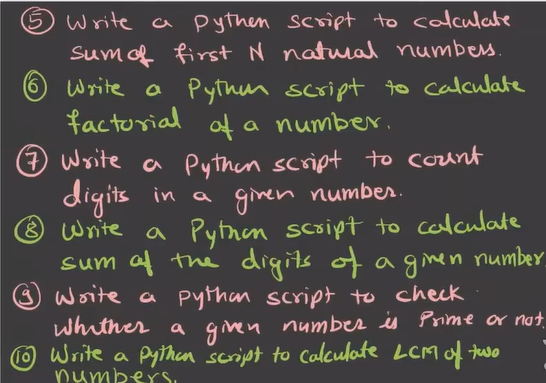 ⑤ Write a Python script to calculate
sum of first N natural numbers.
⑥ Write a Python script to calculate
factorial of a number.
⑦ Write a Python script to count
digits in a given number.
⑧ Write a Python script to calculate
sum of the digits of a given number
⑨ Write a python script to check
whether a given number is Prime or not.
⑩ Write a python script to calculate LCM of two
numbers.